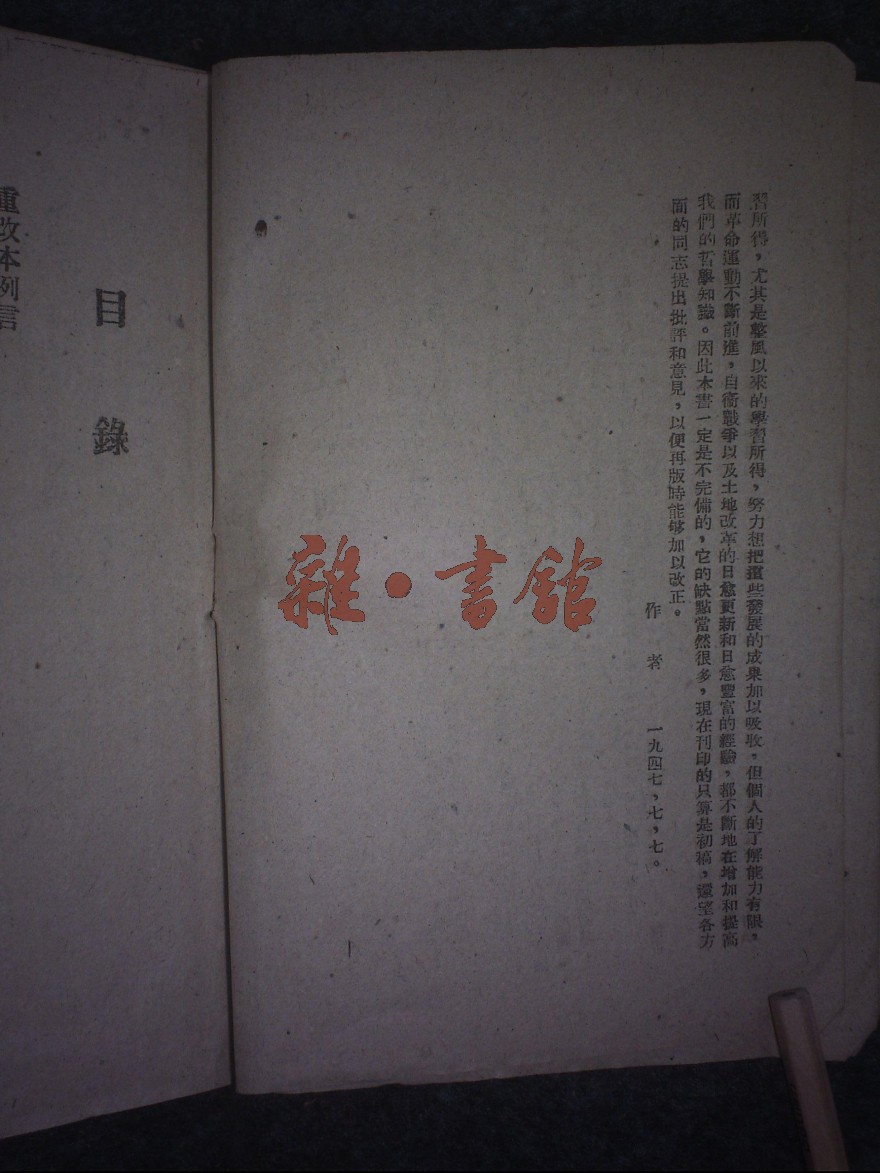 習所得，尤其是整風以來的學習所得，努力想把這些發展的成果加以吸收，但個人的了解能力有限，
而革命運動不斷前進，自衛戰爭以及土地改革的日愈更新和日愈豐富的經驗，都不斷地在增加和提高
我們的哲學知識。因此本書一定是不完備的，它的缺點當然很多，現在刊印的只算是初稿，還望各方
面的同志提出批評和意見，以便再版時能够加以改正。
作者 一九四七，七，七。
目錄
重改本例言
雜·書館